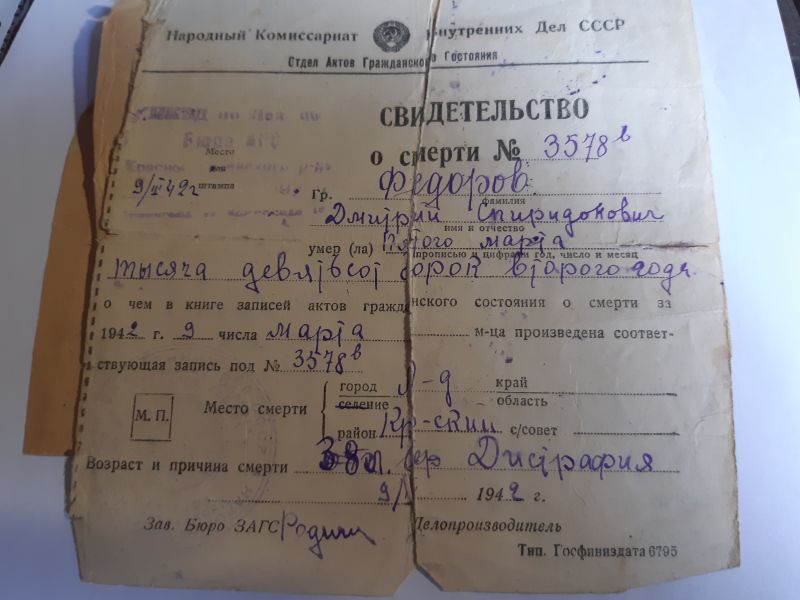 Народный Комиссариат Внутренних Дел СССР
Отдел Актов Гражданского Состояния
СВИДЕТЕЛЬСТВО
о смерти № 3578в
Бюро
Место
для
штампа
9/III 42г
Гр. Федоров
фамилия
Дмитрий Спиридонович
имя и отчество
умер (ла) Пятого марта
прописью и цифрами год, число и месяц
тысяча девятьсот сорок второго года
о чем в книге записей актов гражданского состояния о смерти за
1942 г. 9 числа марта м-ца произведена соответ-
ствующая запись под № 3578в
Место смерти
город Л-д край
селение область
район Кр-ский с/совет
М. П.
Возраст и причина смерти 38 л. Дистрафия
9/ 1942 г.
Зав. Бюро ЗАГС Делопроизводитель
Тип. Госфиниздата 6795